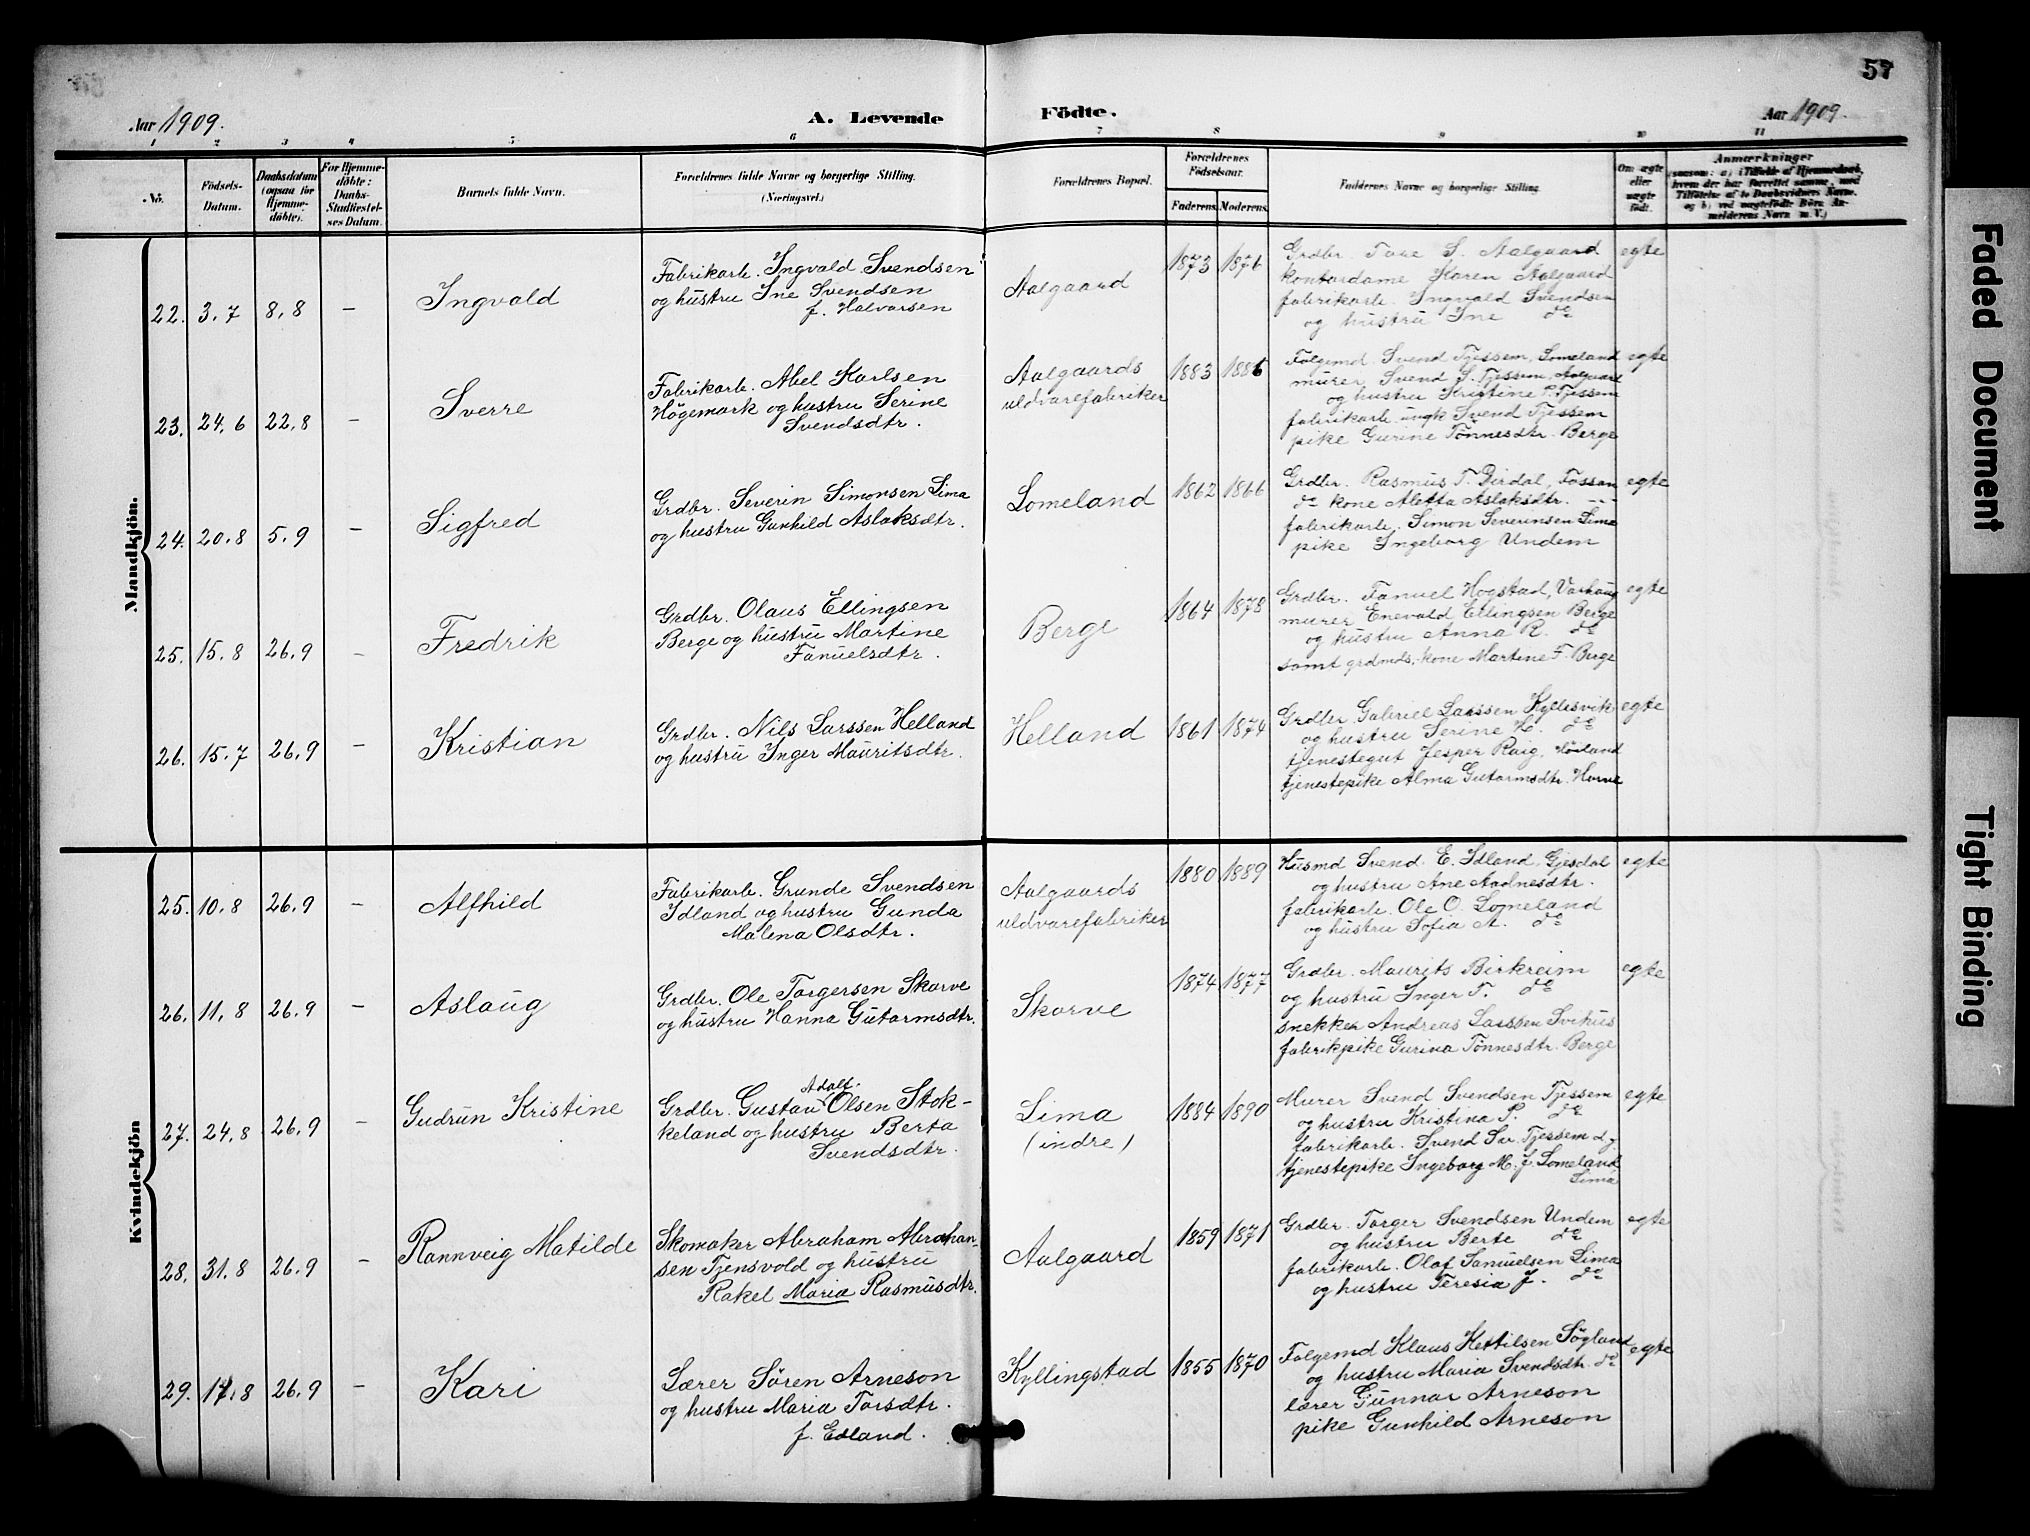 57
Aar 1909. A. Levende Födte. Aar 1909.
1 2 3 4 5 6 7 8 9 10 11
No.
Födsels-
Datum.
Daabsdatum
(ogsaa for
Hjemme-
döbte).
For Hjemme-
döbte:
Daabs-
Stadfæstel-
ses Datum.
Barnets fulde Navn.
Forældrenes fulde Navne og borgerlige Stilling.
(Næringsvei.)
Forældrenes Bopæl.
Forældrenes
Födselsaar.
Faderens. Moderens.
Faddernes Navne og borgerlige Stilling.
Om ægte
eller
uægte
födt.
Anmærkninger
(saasom: a) i Tilfælde af Hjemmedaab,
hvem der har forrettet samme, med
Tilföielse af to Daabsvidners Navne.
og b) ved uægtefödte Börn An-
melderens Navn m. V.)
Mandkjön.
22. 3.7 8.8 — Ingvald
Fabrikarb. Ingvald Svendsen
og hustru Ine Svendsen
f. Halvorsen
Aalgaard
1873 1876
Grdbr. Tore S. Aalgaard
kontordame Karen Aalgaard
fabrikarb. Ingvald Svendsen
og hustru Ine do
egte
23. 24.6 22.8 — Sverre
Fabrikarb. Abel Karlsen
Högemark og hustru Serine
Svendsdtr.
Aalgaards
uldvarefabriker
1883 1886
Følgemd. Svend Tjessem, Lomeland
murer Svend S. Tjessem, Aalgaard
og hustru Kristine P. Tjessem
fabrikarb. ungk Svend Tjessem
pike Gurine Tønnesdtr. Berge
egte
24. 20.8 5.9 — Sigfred
Grdbr. Severin Simonsen Lima
og hustru Gunhild Aslaksdtr.
Lomeland
1862 1866
Grdbr. Rasmus T. Dirdal, Fossan
do kone Aletta Aslaksdtr. -"-
fabrikarb. Simon Severinsen Lima
pike Ingeborg Undem
egte
25. 15.8 26.9 — Fredrik
Grdbr. Olaus Ellingsen
Berge og hustru Martine
Fanuelsdtr.
Berge
1864 1878
Grdbr. Fanuel Hogstad, Varhaug
murer Enevald Ellingsen Berge
og hustru Anna R. do
samt grdmds.-kone Martine F. Berge
egte
26. 15.7 26.9 — Kristian
Grdbr. Nils Larssen Helland
og hustru Inger Mauritsdtr.
Helland
1861 1874
Grdbr. Gabriel Larssen Kyllesvik
og hustru Serine H. do
tjenestegut Jesper Roig,
tjenestepike Alma Gutormsdtr.
egte
Kvindekjön
25. 10.8 26.9 — Alfhild
Fabrikarb. Grunde Svendsen
Idland og hustru Gunda
Malena Olsdtr.
Aalgaards
uldvarefabriker
1880 1889
Husmd Svend E. Idland, Gjesdal
og hustru Ane Aadnesdtr.
fabrikarb. Ole O. Lomeland
og hustru Sofia A. do
egte
26. 11.8 26.9 — Aslaug
Grdbr. Ole Torgersen Skorve
og hustru Hanna Gutormsdtr.
Skorve
1874 1877
Grdbr. Maurits Birkreim
og hustru Inger T. do
snekker Andreas Larssen Svihus
fabrikpike Gurina Tønnesdtr. Berge
egte
27. 24.8 26.9 — Gudrun Kristine
Adolf.
Grdbr. Gustav Olsen Stok-
keland og hustru Berta
Svendsdtr.
Lima
(indre)
1884 1890
Murer Svend Svendsen Tjessem
og hustru Kristina P. do
fabrikarb. Svend Sv. Tjessem d.y
tjenestepike Ingeborg M. J. Lomeland
Lima
egte
28. 31.8 26.9 — Rannveig Matilde
Skomaker Abraham Abraham-
sen Tjensvold og hustru
Rakel Maria Rasmusdtr.
Aalgaard
1859 1871
Grdbr. Torger Svendsen Undem
og hustru Berte do
fabrikarb. Olaf Samuelsen Lima
og hustru Teresia J. do
egte
29. 17.8 26.9 — Kari
Lærer Sören Arneson
og hustru Maria Torsdtr.
f. Edland.
Kyllingstad
1855 1870
Følgemd Klaus Kettilsen Søyland
og hustru Maria Svendsdtr. do
lærer Gunnar Arneson
pike Gunhild Arneson
egte
Faded Document
Tight Binding